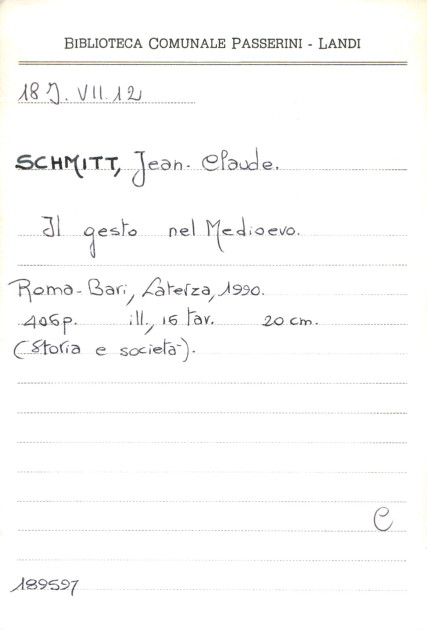 BIBLIOTECA COMUNALE PASSERINI - LANDI
18 J. VII.12
SCHMITT, Jean-Claude.
Il gesto nel Medioevo.
Roma-Bari, Laterza, 1990.
406p. ill., 16 tav. 20 cm.
(Storia e società).
C
189597